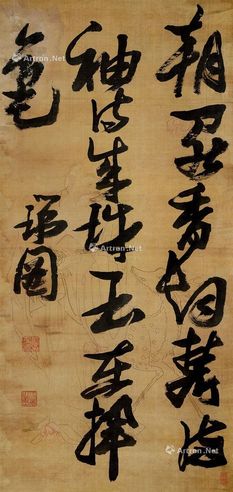 朝罷香烟攜滿
袖詩成珠玉在揮
毫
瑞圖
Artron.Net
Artron.Net
Artron.Net
Artron.Net